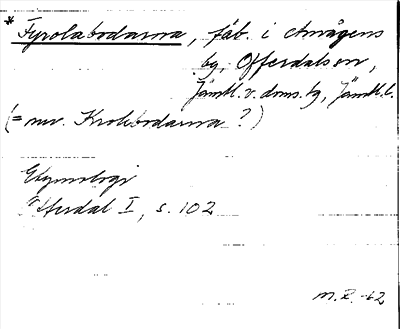 * Fyrolabodarna, fäb. i Ånågens
by, Offerdals sn,
Jämtl. v. doms. tg, Jämtl. l.
(= nuv. Krokbodarna?)
Etymologi
Offerdal I, s. 102
M.E. -62